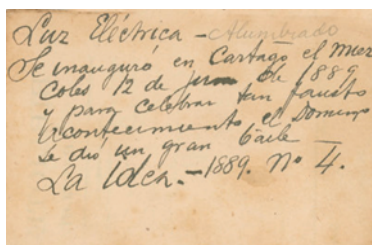 Luz Eléctrica - Alumbrado
Se inauguró en Cartago el Miér
coles 12 de junio de 1889
y para celebrar tan fausto
acontecimiento, el Domingo
se dió un gran baile —
La Idea. - 1889. Nº 4.